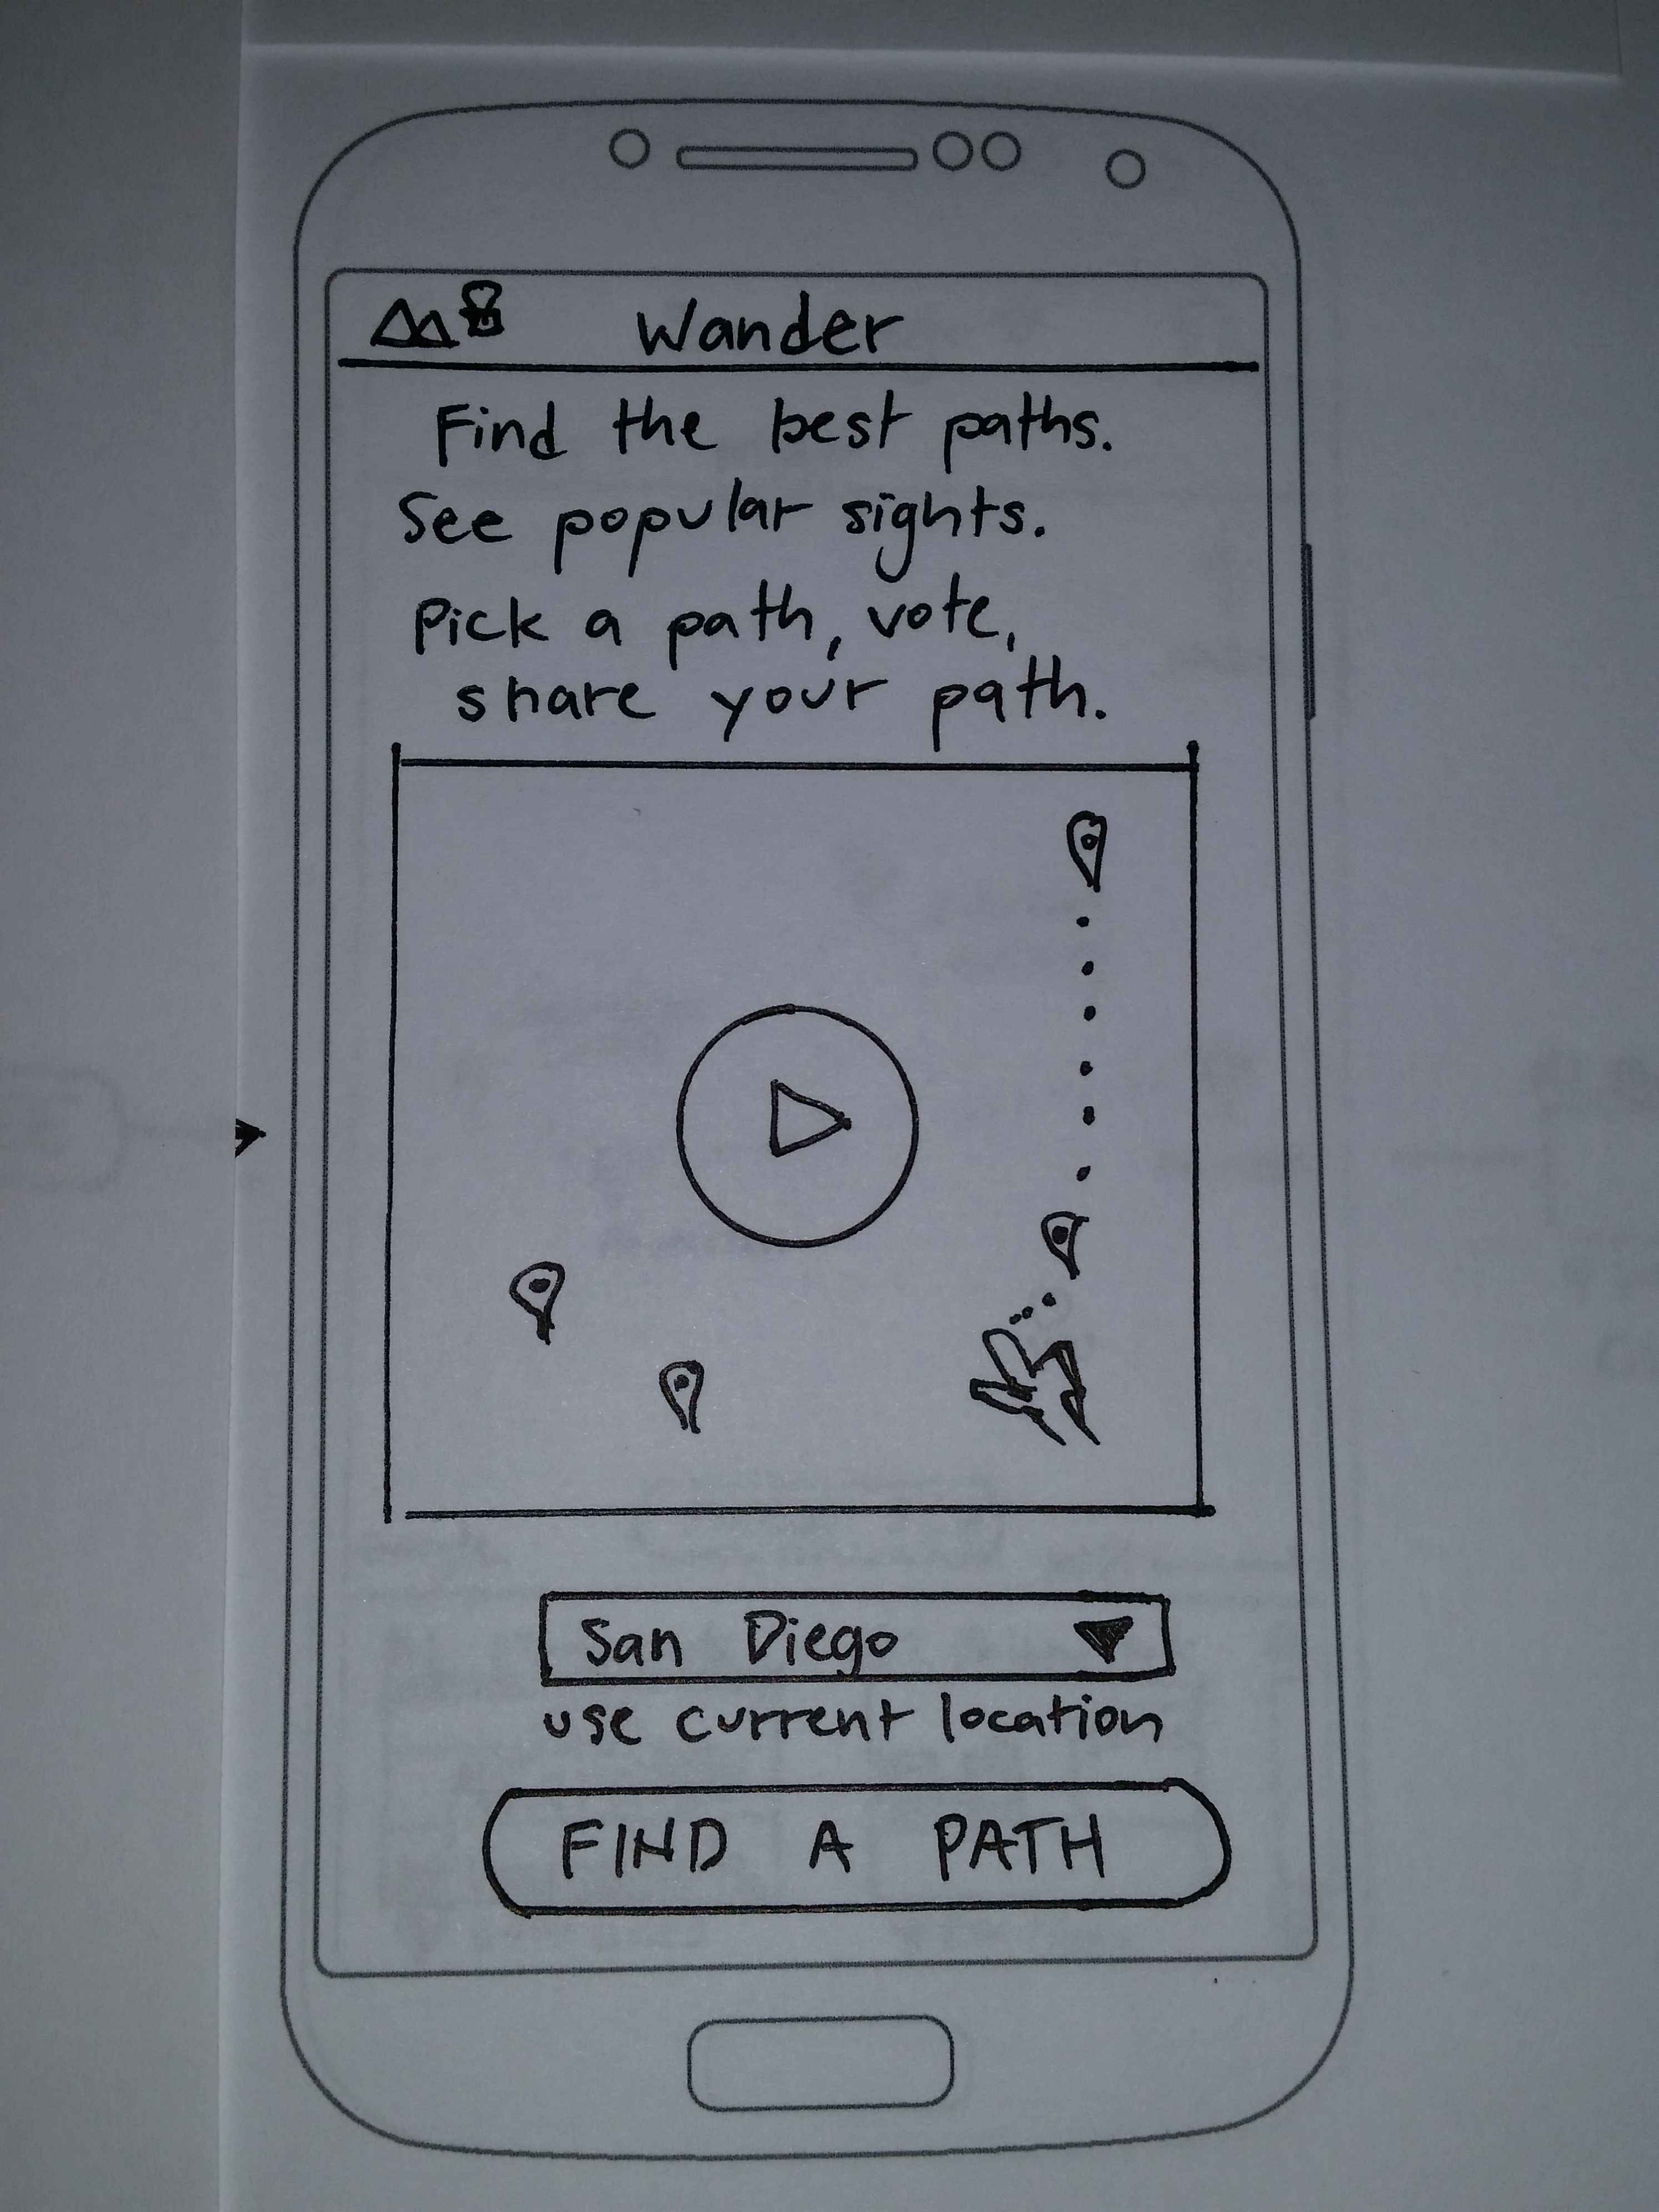 Wander
Find the best paths.
See popular sights.
Pick a path, vote,
share your path.
San Diego
use current location
FIND A PATH